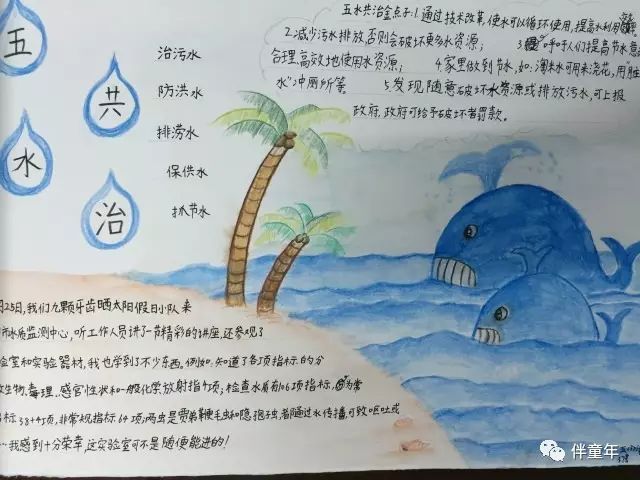 五
共
水
治
治污水
防洪水
排涝水
保供水
抓节水
五水共治金点子:1.通过技术改革,使水可以循环使用,提高水利用
2.减少污水排放否则会破坏更多水资源; 3 呼吁人们提高节水意
合理,高效地使用水资源; 4.家里做到节水,如:淘米水可用来浇花,用"脏
水"冲厕所等 5.发现随意破坏水资源或排放污水,可上报
政府,政府可给予破坏者罚款。
月25日,我们九颗牙齿晒太阳假日小队来
市水质监测中心,听工作人员讲了一节精彩的讲座,还参观了
验室和实验器材,我也学到了不少东西,例如:知道了各项指标的分
生物、毒理、感官性状和一般化学放射指标项;检查水质有106项指标,为常
标38+4项,非常规指标64项;两虫是贾第鞭毛虫和隐孢子虫,着随过水传播,可致呕吐或
…我感到十分荣幸,这实验室可不是随便能进的!
伴童年